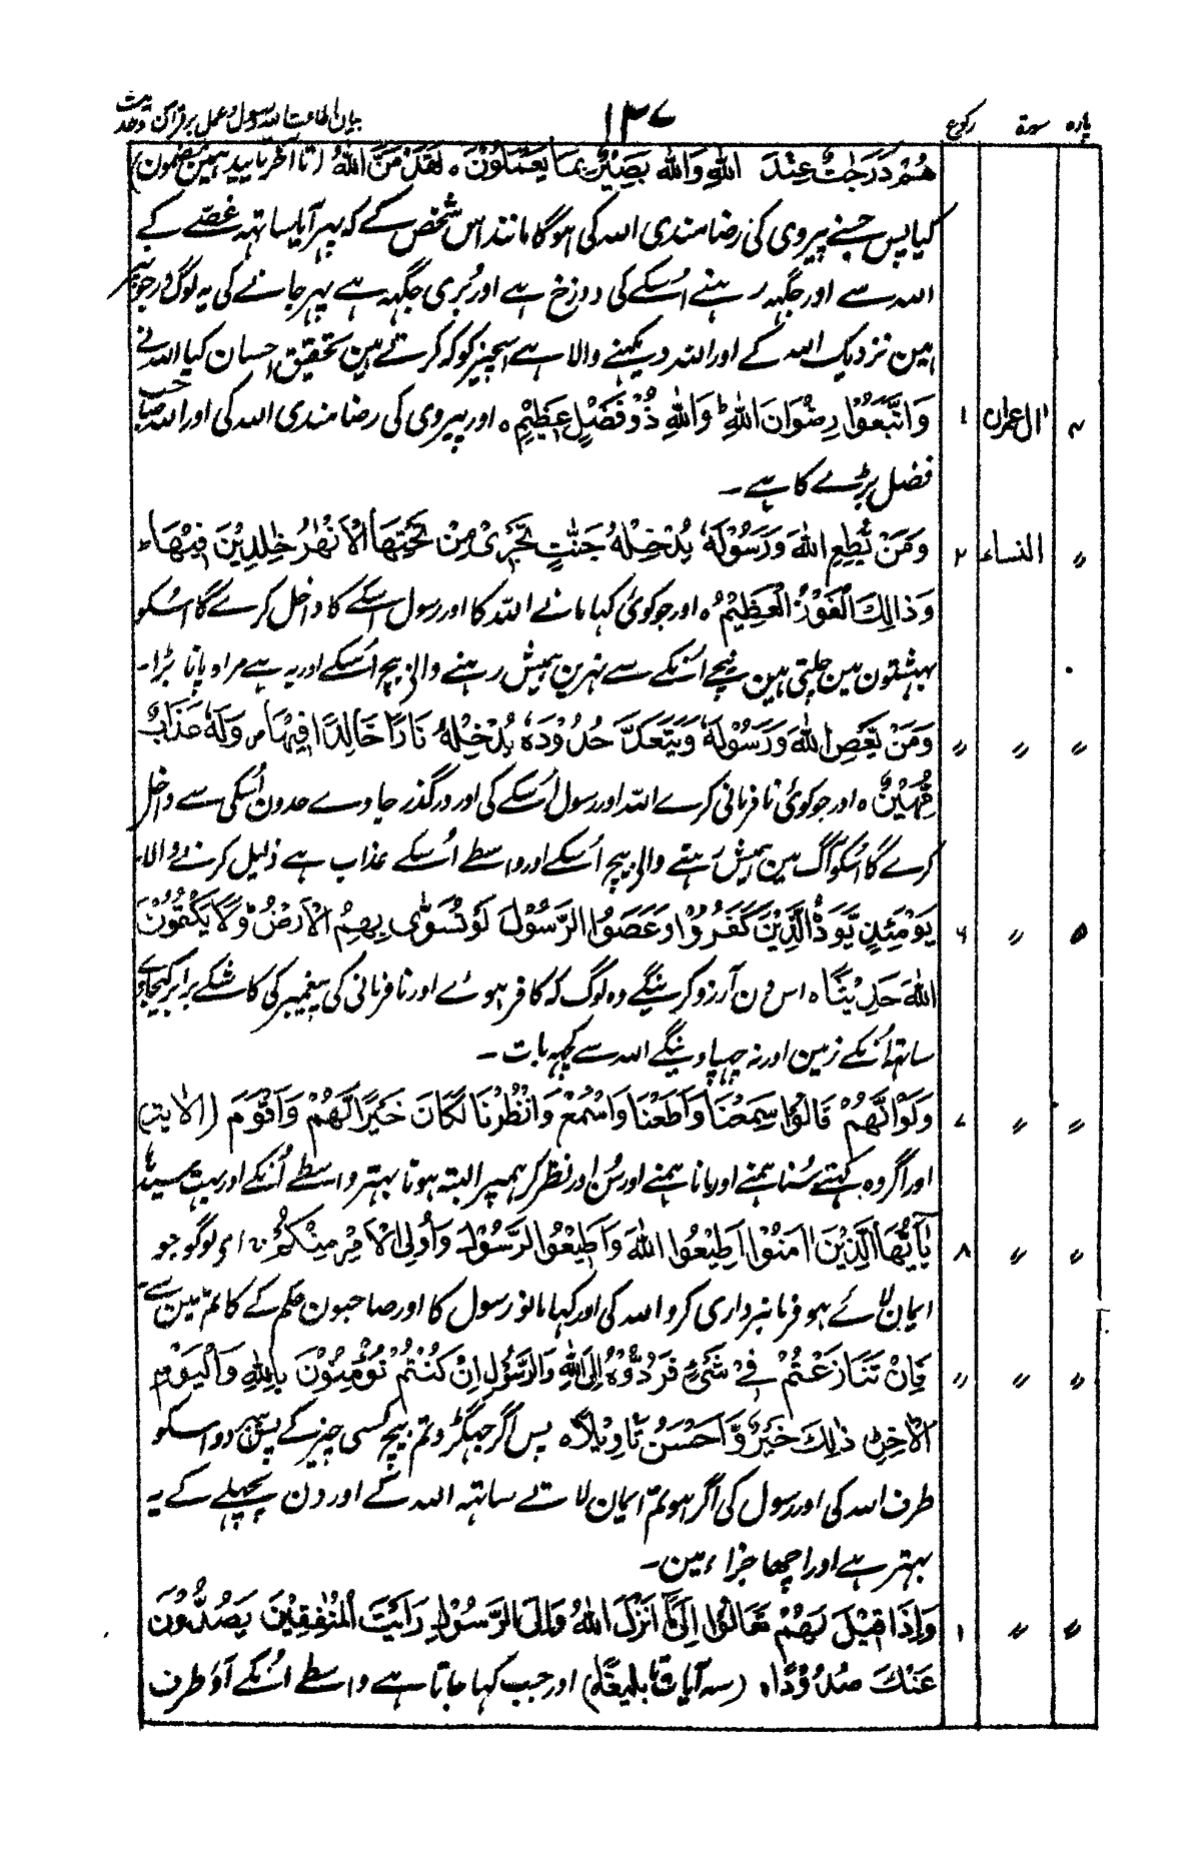 پارہ سورۃ رکوع ۱۳۷ بیان اطاعت اللہ و رسول و عمل بر قرآن و حدیث
هُمْ دَرَجٰتٌ عِنْدَ اللّٰهِ وَاللّٰهُ بَصِيْرٌۢ بِمَا يَعْمَلُوْنَ ہ لَقَدْ مَنَّ اللّٰهُ (تا آخر بایید ہمین مضمون)
کیا پس جسنے پیروی کی رضامندی اللہ کی ہوگا مانند اس شخص کے کہ پہر آیا ساتہہ غصّے کے
اللہ سے اور جگہہ رہنے اُسکے کی دوزخ ہے اور بُری جگہہ ہے پہر جانے کی یہ لوگ درجونپر
ہین نزدیک اللہ کے اور اللہ دیکہنے والا ہے اسچیز کو کہ کرتے ہین تحقیق احسان کیا اللہ نے
۴ اٰل عمران ۱ وَاتَّبَعُوْا رِضْوَانَ اللّٰهِ ؕ وَاللّٰهُ ذُوْ فَضْلٍ عَظِيْمٍ ہ اور پیروی کی رضامندی اللہ کی اور اللہ صاحب
فضل بڑے کا ہے ۔
〃 النساء ۲ وَمَنْ يُّطِعِ اللّٰهَ وَرَسُوْلَهٗ يُدْخِلْهُ جَنّٰتٍ تَجْرِىْ مِنْ تَحْتِهَا الْاَنْهٰرُ خٰلِدِيْنَ فِيْهَا ط
وَذٰلِكَ الْفَوْزُ الْعَظِيْمُ ہ اور جو کوئی کہا مانے اللہ کا اور رسول اسکے کا داخل کرے گا اسکو
بہشتون مین چلتی ہین نیچے انکے سے نہرین ہمیش رہنے والے بیچ اُسکے اور یہ ہے مراد پانا بڑا ۔
〃 〃 〃 وَمَنْ يَّعْصِ اللّٰهَ وَرَسُوْلَهٗ وَيَتَعَدَّ حُدُوْدَهٗ يُدْخِلْهُ نَارًا خَالِدًا فِيْهَا ص وَلَهٗ عَذَابٌ
مُّهِيْنٌ ہ اور جو کوئی نافرمانی کرے اللہ اور رسول اُسکے کی اور درگذر جاوے حدون اُسکی سے داخل
کرے گا اُسکو آگ مین ہمیش رہتے والے بیچ اُسکے اور واسطے اُسکے عذاب ہے ذلیل کرنے والا ۔
۵ 〃 ۶ يَوْمَئِذٍ يَّوَدُّ الَّذِيْنَ كَفَرُوْا وَعَصَوُا الرَّسُوْلَ لَوْ تُسَوّٰى بِهِمُ الْاَرْضُ ؕ وَلَا يَكْتُمُوْنَ
اللّٰهَ حَدِيْثًا ہ اس دن آرزو کرینگے وہ لوگ کہ کافر ہوئے اور نافرمانی کی پیغمبر کی کاشکے برابر کیجاوے
ساتہہ اُنکے زمین اور نہ چہپاوینگے اللہ سے کچہہ بات ۔
〃 〃 ۷ وَلَوْ اَنَّهُمْ قَالُوْا سَمِعْنَا وَاَطَعْنَا وَاسْمَعْ وَانْظُرْنَا لَكَانَ خَيْرًا لَّهُمْ وَاَقْوَمَ (الآیۃ)
اور اگر وہ کہتے سُنا ہمنے اور مانا ہمنے اور سُن اور نظر کر ہمپر البتہ ہوتا بہتر واسطے اُنکے اور بہت سیدہا
〃 〃 ۸ يٰٓاَيُّهَا الَّذِيْنَ اٰمَنُوْٓا اَطِيْعُوا اللّٰهَ وَاَطِيْعُوا الرَّسُوْلَ وَاُولِى الْاَمْرِ مِنْكُمْ ۚ ای لوگو جو
ایمان لائے ہو فرمانبرداری کرو اللہ کی اور کہا مانو رسول کا اور صاحبون حکم کے کا تم مین سے ۔
〃 〃 〃 فَاِنْ تَنَازَعْتُمْ فِىْ شَىْءٍ فَرُدُّوْهُ اِلَى اللّٰهِ وَالرَّسُوْلِ اِنْ كُنْتُمْ تُؤْمِنُوْنَ بِاللّٰهِ وَالْيَوْمِ
الْاٰخِرِ ؕ ذٰلِكَ خَيْرٌ وَّاَحْسَنُ تَاْوِيْلًا ہ پس اگر جہگڑو تم بیچ کسی چیز کے پس پہیر دو اسکو
طرف اللہ کی اور رسول کی اگر ہو تم ایمان لاتے ساتہہ اللہ کے اور دن پچہلے کے یہ
بہتر ہے اور اچھا جزاء مین ۔
〃 〃 ۱ وَاِذَا قِيْلَ لَهُمْ تَعَالَوْا اِلٰى مَآ اَنْزَلَ اللّٰهُ وَاِلَى الرَّسُوْلِ رَاَيْتَ الْمُنٰفِقِيْنَ يَصُدُّوْنَ
عَنْكَ صُدُوْدًا ہ (سہ آیات تا بلیغًا) اور جب کہا جاتا ہے واسطے اُنکے آؤ طرف